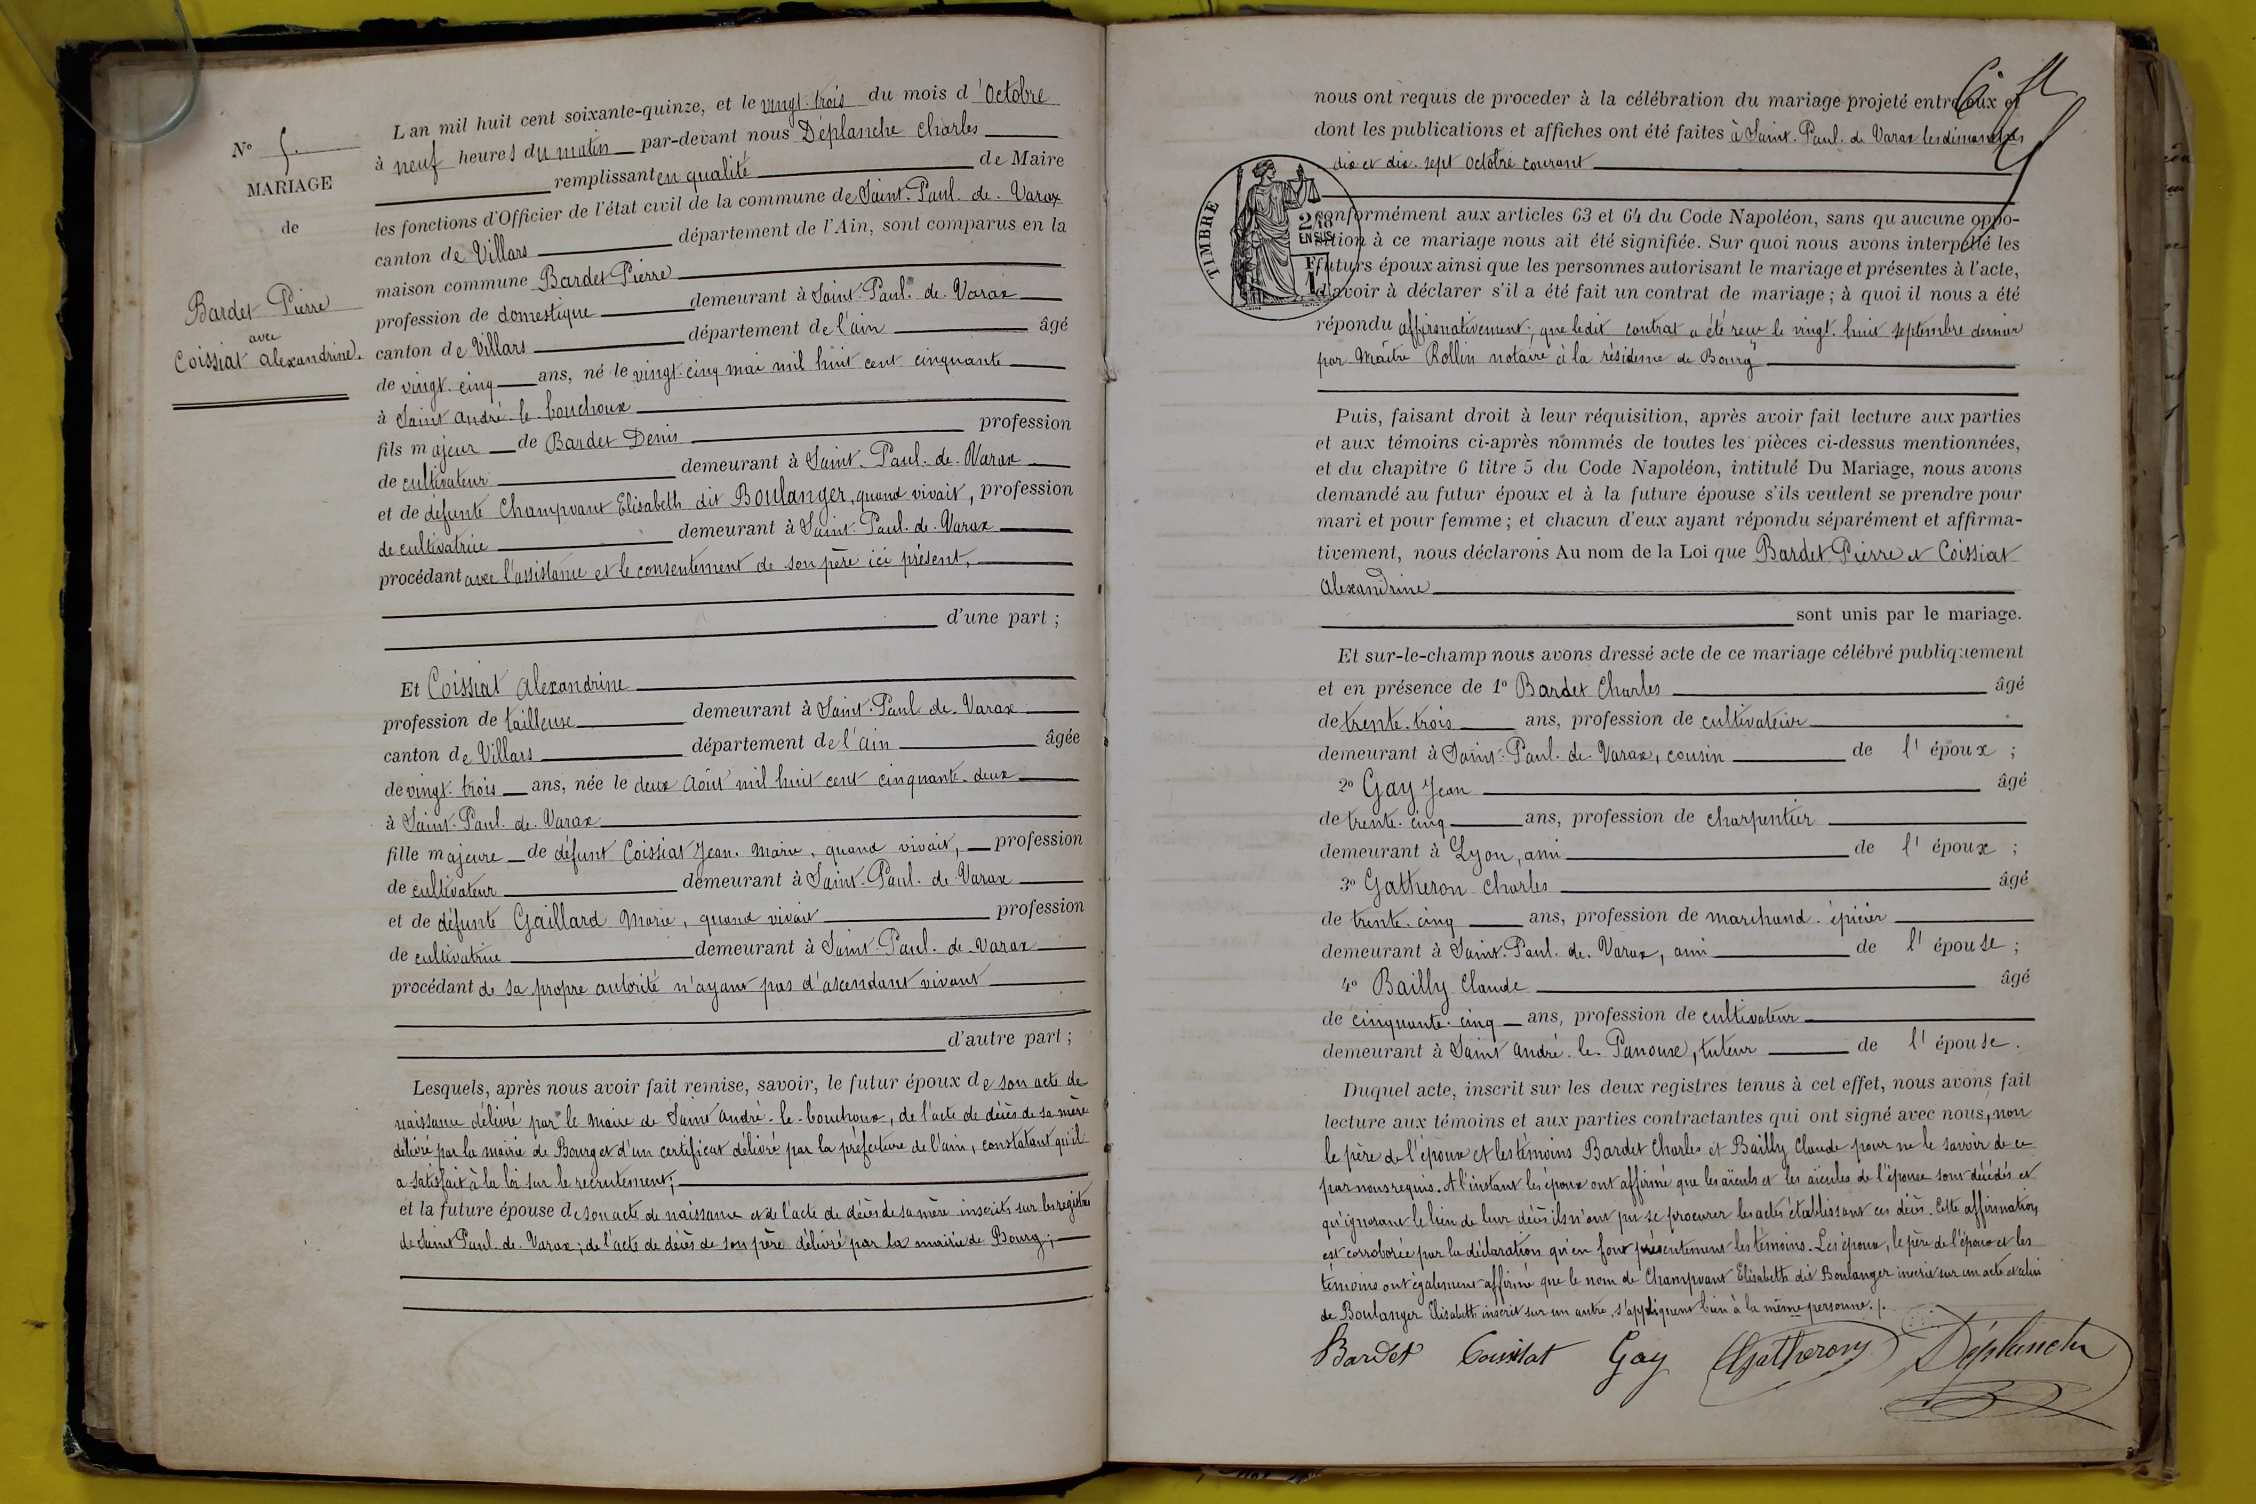 N° 5.
MARIAGE
de
Bardet Pierre
avec
Coissiat alexandrine.
L an mil huit cent soixante-quinze, et le vingt-trois du mois d'Octobre
à neuf heures du matin par-devant nous Déplanche Charles
remplissant en qualité de Maire
les fonctions d'Officier de l'état civil de la commune de Saint-Paul-de-Varax
canton de Villars département de l'Ain, sont comparus en la
maison commune Bardet Pierre
profession de domestique demeurant à Saint-Paul-de-Varax
canton de Villars département de l'ain âgé
de vingt-cinq ans, né le vingt-cinq mai mil huit cent cinquante
à Saint andré-le-bouchoux
fils majeur de Bardet Denis profession
de cultivateur demeurant à Saint-Paul-de-Varax
et de défunte Champvant Elisabeth dit Boulanger, quand vivait, profession
de cultivatrice demeurant à Saint-Paul-de-Varax
procédant avec l'assistance et le consentement de son père ici présent,
d'une part ;
Et Coissiat alexandrine
profession de tailleuse demeurant à Saint-Paul-de-Varax
canton de Villars département de l'ain âgée
de vingt-trois ans, née le deux Août mil huit cent cinquante-deux
à Saint-Paul-de-Varax
fille majeure de défunt Coissiat Jean-Marie, quand vivait, profession
de cultivateur demeurant à Saint-Paul-de-Varax
et de défunte Gaillard Marie, quand vivait profession
de cultivatrice demeurant à Saint-Paul-de-Varax
procédant de sa propre autorité n'ayant pas d'ascendant vivant
d'autre part ;
Lesquels, après nous avoir fait remise, savoir, le futur époux de son acte de
naissance délivré par le Maire de Saint andré-le-bouchoux, de l'acte de décès de sa mère
délivré par la mairie de Bourg et d'un certificat délivré par la préfecture de l'ain, constatant qu'il
a satisfait à la loi sur le recrutement;
et la future épouse de son acte de naissance et de l'acte de décès de sa mère inscrits sur les registres
de Saint Paul-de-Varax; de l'acte de décès de son père délivré par la mairie de Bourg;
nous ont requis de proceder à la célébration du mariage projeté entre eux et
dont les publications et affiches ont été faites à Saint-Paul-de-Varax les dimanches
dix et dix-sept Octobre courant
TIMBRE
2/10
EN SUS
1F
conformément aux articles 63 et 64 du Code Napoléon, sans qu aucune oppo-
sition à ce mariage nous ait été signifiée. Sur quoi nous avons interpellé les
futurs époux ainsi que les personnes autorisant le mariage et présentes à l'acte,
d'avoir à déclarer s'il a été fait un contrat de mariage ; à quoi il nous a été
répondu affirmativement, que ledit contrat a été reçu le vingt-huit septembre dernier
par Maître Rollin notaire à la résidence de Bourg
Puis, faisant droit à leur réquisition, après avoir fait lecture aux parties
et aux témoins ci-après nommés de toutes les pièces ci-dessus mentionnées,
et du chapitre 6 titre 5 du Code Napoléon, intitulé Du Mariage, nous avons
demandé au futur époux et à la future épouse s'ils veulent se prendre pour
mari et pour femme ; et chacun d'eux ayant répondu séparément et affirma-
tivement, nous déclarons Au nom de la Loi que Bardet Pierre et Coissiat
alexandrine
sont unis par le mariage.
Et sur-le-champ nous avons dressé acte de ce mariage célébré publiquement
et en présence de 1° Bardet Charles âgé
de trente-trois ans, profession de cultivateur
demeurant à Saint-Paul-de-Varax, cousin de l'époux ;
2° Gay Jean âgé
de trente-cinq ans, profession de charpentier
demeurant à Lyon, ami de l'époux ;
3° Gatheron Charles âgé
de trente-cinq ans, profession de marchand-épicier
demeurant à Saint-Paul-de-Varax, ami de l'épouse ;
4° Bailly Claude âgé
de cinquante-cinq ans, profession de cultivateur
demeurant à Saint andré-le-Panoux, tuteur de l'épouse.
Duquel acte, inscrit sur les deux registres tenus à cet effet, nous avons fait
lecture aux témoins et aux parties contractantes qui ont signé avec nous, non
le père de l'époux et les témoins Bardet Charles et Bailly Claude pour ne le savoir de ce
par nous requis. A l'instant les époux ont affirmé que les aïeuls et les aïeules de l'épouse sont décédés et
qu'ignorant le lieu de leur décès ils n'ont pu se procurer les actes établissant ces décès. Cette affirmation
est corroborée par la déclaration qu'en font présentement les témoins. Les époux, le père de l'époux et les
témoins ont également affirmé que le nom de Champvant Elisabeth dit Boulanger inscrit sur un acte et celui
de Boulanger Elisabeth inscrit sur un autre, s'appliquent bien à la même personne./.
Bardet Coissiat Gay Gatheron Déplanche